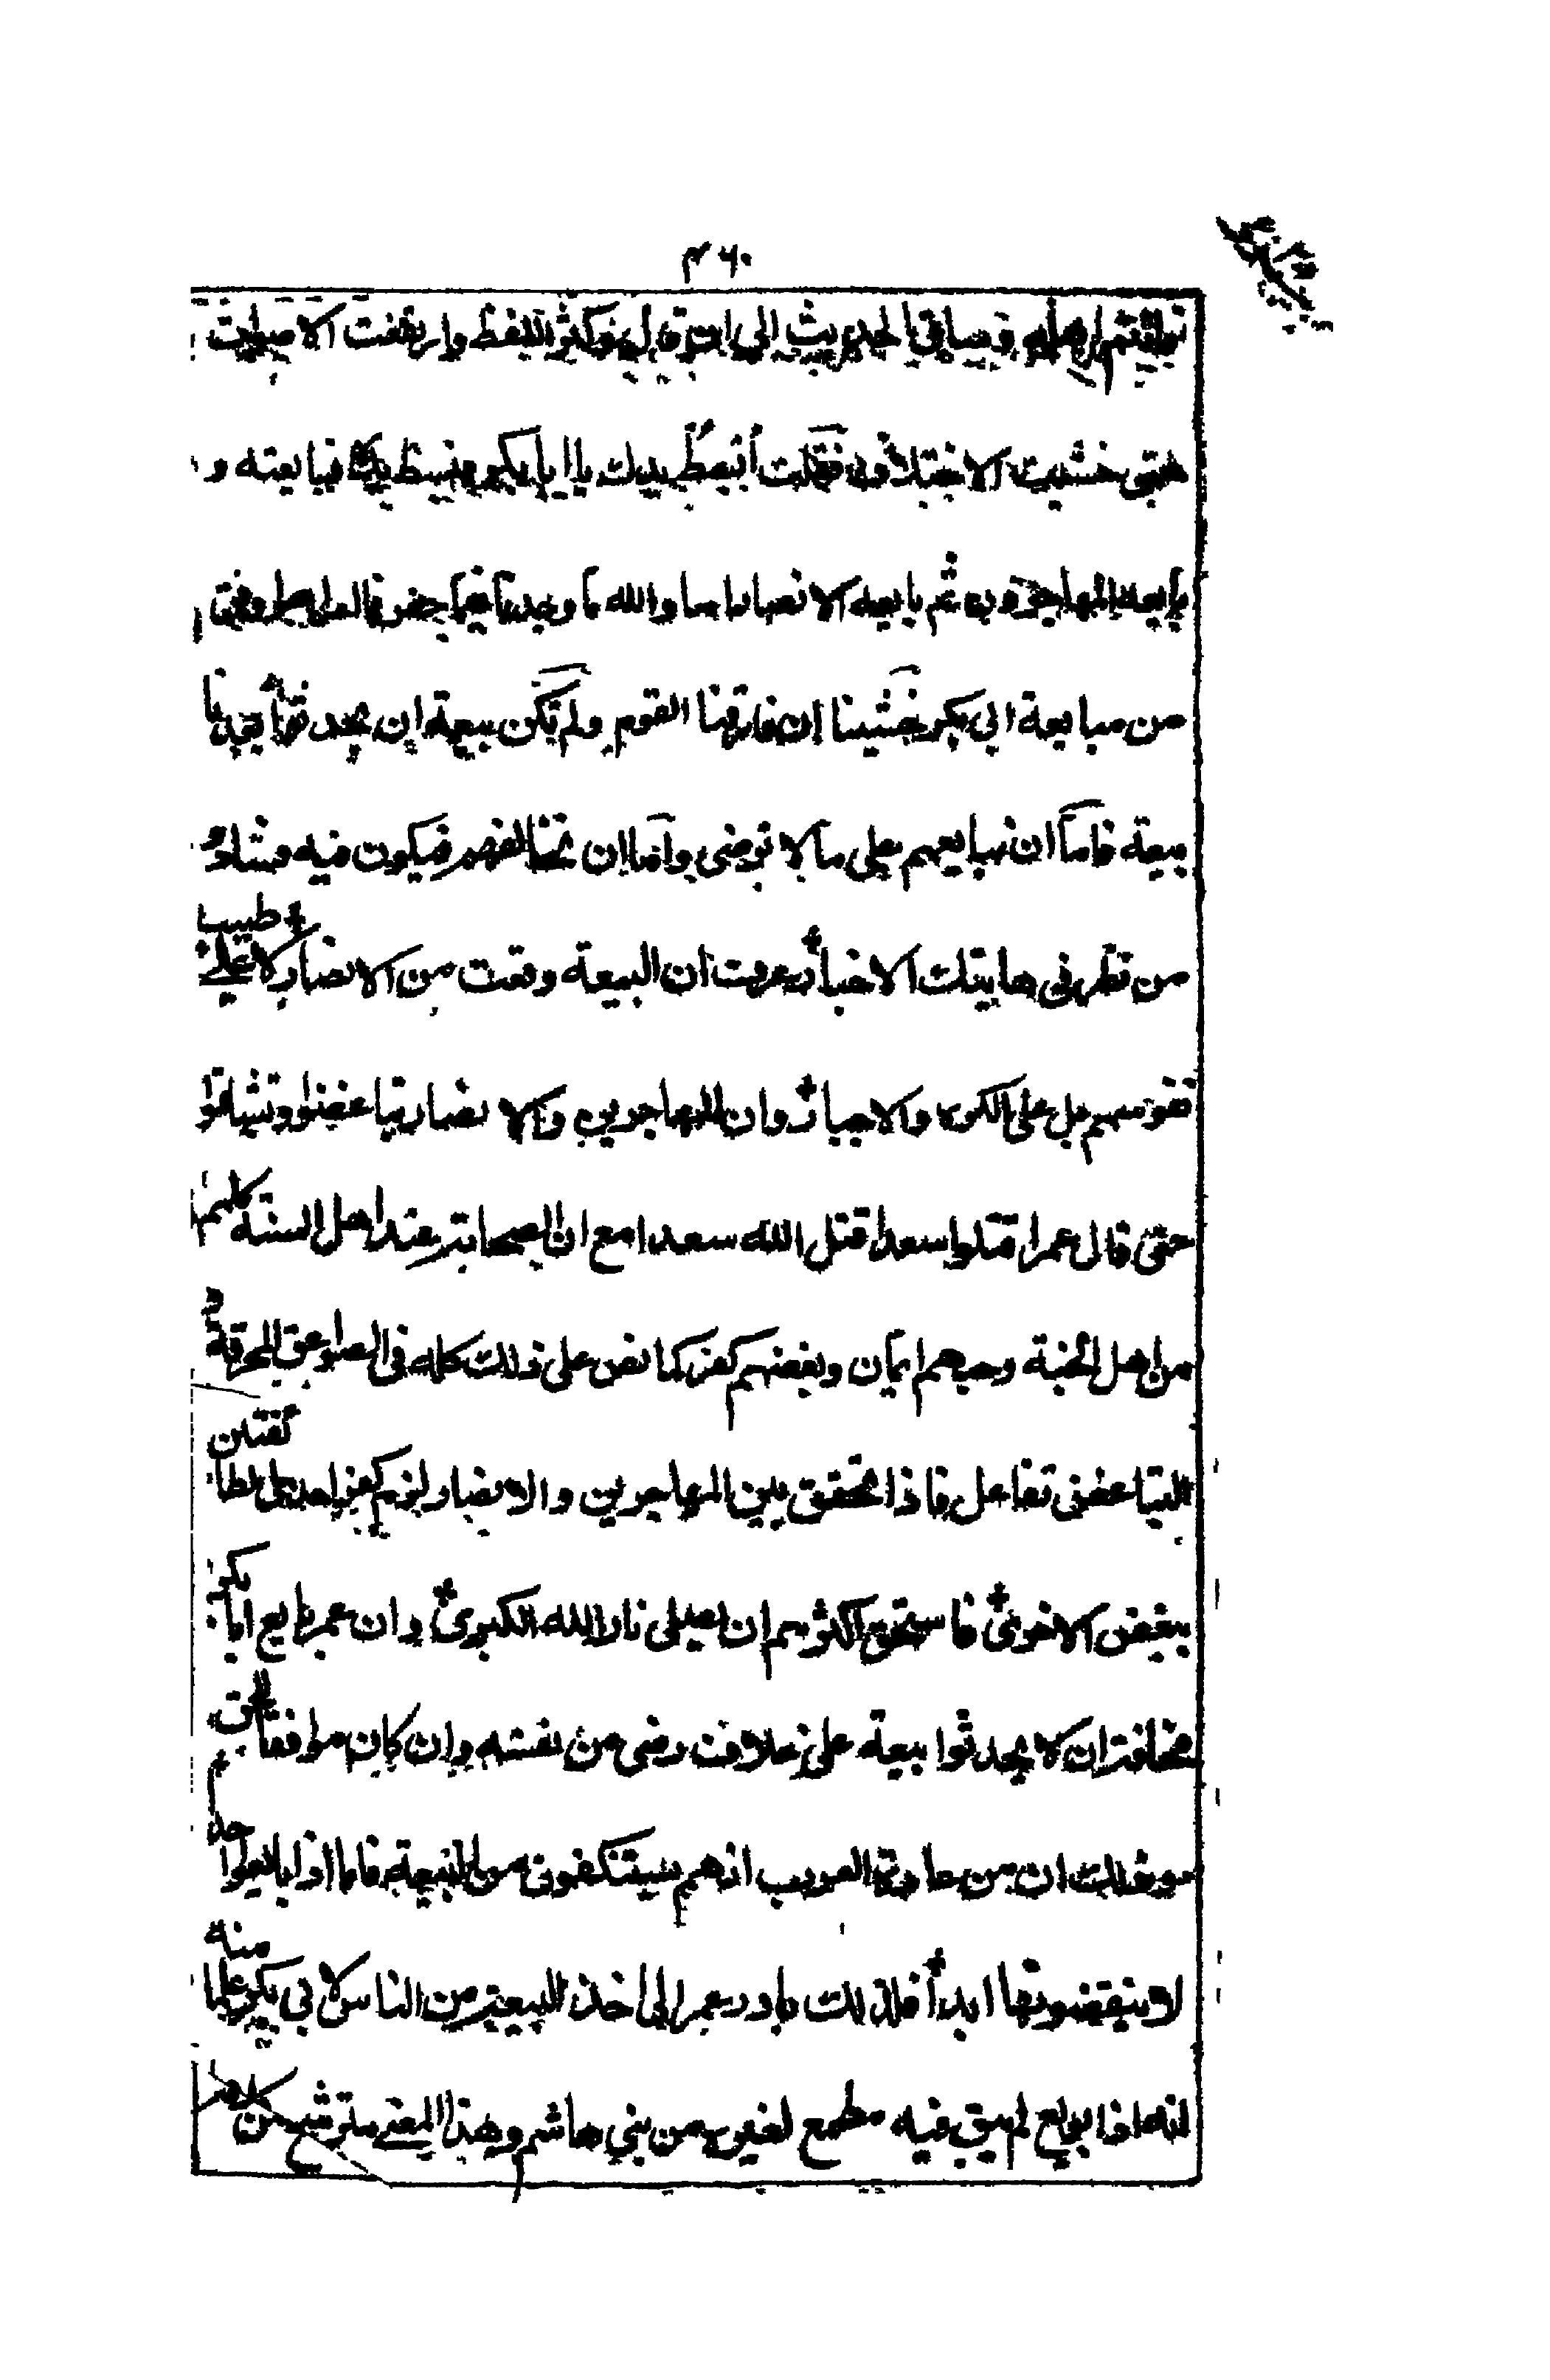 ۴۶۰
وساق الحديث الى ان قال فكثر اللغط وارتفعت الاصوات
حتى خشيت الاختلاف فقلت ابسط يدك يا ابا بكر فبسط يده فبايعته و
بايعه المهاجرون ثم بايعه الانصار اما والله ما وجدنا فيما حضرنا امرا هو اوفق
من مبايعة ابي بكر خشينا ان فارقنا القوم ولم تكن بيعة ان يحدثوا بعدنا
بيعة فاما ان نبايعهم على ما لا نرضى واما ان نخالفهم فيكون فيه فساد
من نظر في هاتيك الاخبار عرف ان البيعة وقعت من الانصار لا على طيب
نفوسهم بل على الكره والاجبار وان المهاجرين والانصار تباغضوا وتشاقوا
حتى قال عمر اقتلوا سعدا قتل الله سعدا مع ان الصحابة عند اهل السنة كلهم
من اهل الجنة وحبهم ايمان وبغضهم كفر كما نص على ذلك كله في الصواعق المحرقة و
التباغض تفاعل فاذا تحقق بين المهاجرين والانصار لزم كفر احدى الطائفتين
ببغض الاخرى فاستحق اكثرهم ان يصلى نار الله الكبرى وان عمر بايع ابا بكر
مخافة ان لا يحدثوا بيعة على خلاف رضى من نفسه وان كان موافقا للحق
وذلك ان من عادة العرب انهم يستنكفون من البيعة فاما اذا بايعوا احدا
لا ينقضونها ابدا فلذلك بادر عمر الى اخذ البيعة من الناس لابي بكر علما منه
انه اذا بويع لم يبق فيه مطمع لغيره من بني هاشم وهذا المعنى مترشح من كلامه